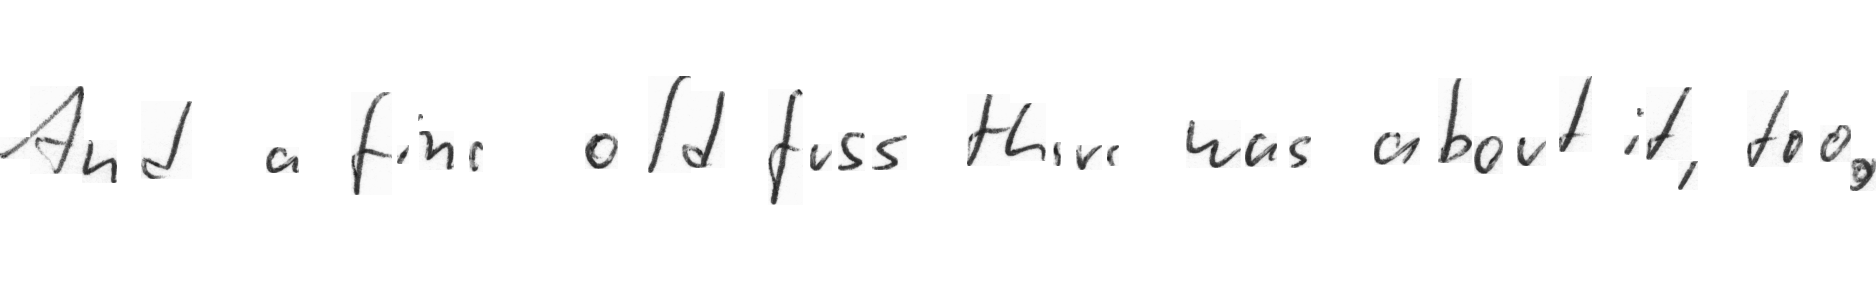 And a fine old fuss there was about it, too,